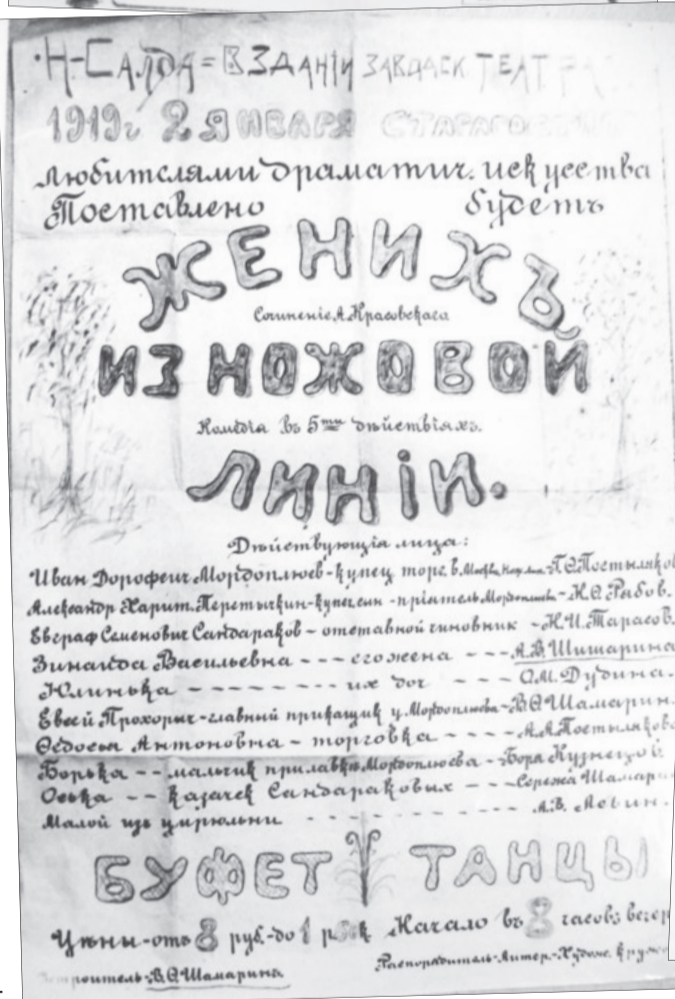 Н-САЛДА = В ЗДАНІИ ЗАВОДСК ТЕАТРА
1919г 2 ЯНВАРЯ СТАРАГО
Любителями драматич. искусства
Поставлено будетъ
ЖЕНИХЪ
Сочиненіе А. Красовскаго
ИЗ НОЖОВОЙ
Комедія въ 5ти дѣйствіяхъ.
ЛИНІИ.
Дѣйствующія лица:
Иван Дорофеич Мордоплюев-купец торг. в - Г.Ѳ. Постыляков
Александр Харит. Перетычкин-купеч. сын - пріятель Мордоплюева - Н.Ѳ. Рябов.
Евграф Семенович Сандараков - отставной чиновник - Н.И. Тарасов.
Зинаида Васильевна - - - его жена - - - А.В. Шишарина
Юлинька - - - - - - - их доч - - - О.М. Дудина.
Евсей Прохорыч-главный прикащик у Мордоплюева - В.Ѳ. Шамарин.
Ѳедосья Антоновна - торговка - - - - А.А. Постылякова
Борька - - мальчик при лавкѣ Мордоплюева - Боря Кузнецов
Оська - - казачек Сандараковых - - - Сережа Шамарин
Малой изъ цирюльни - - - - - - - А.В.
БУФЕТ ТАНЦЫ
Цѣны-отъ 8 руб.-до 1 Начало въ 8 часовъ вечер
В.Ѳ. Шамарина Распорядитель-Литер.-Худож. кружок